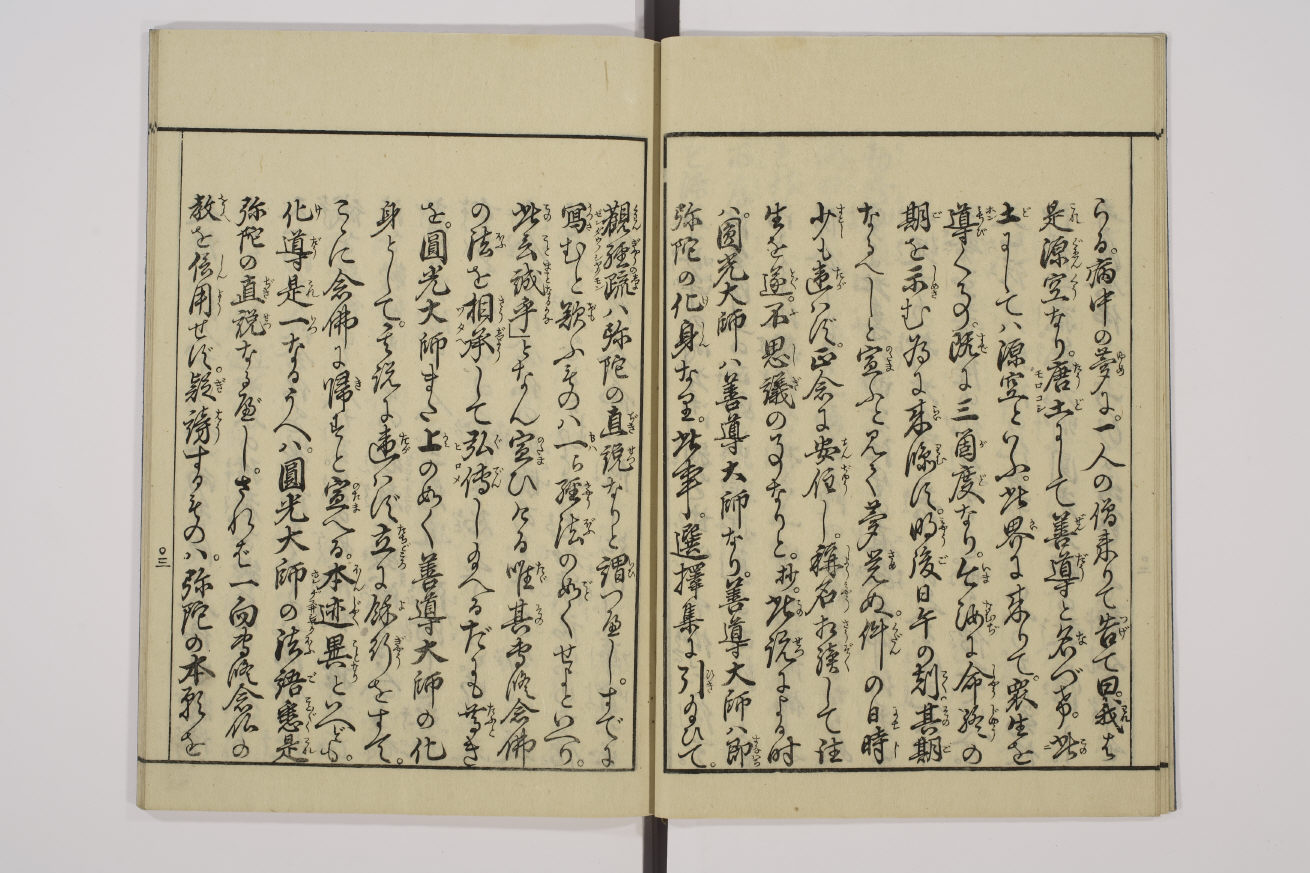 らる。病中の夢に。一人の僧来りて告て曰。我は
是源空なり。唐土にして善導と名づけ。此
土にしてハ源空といふ。此界に来りて。衆生を
導くこと。既に三箇度なり。今汝に命終の
期を示さむ為に来臨す。明後日午の刻其期
なるへしと宣ふと見て夢覚ぬ。件の日時
少も違ハず。正念に安住し。稱名相續して往
生を遂。不思議の事なりと。抄。此説による時
ハ。圓光大師ハ善導大師なり。善導大師ハ即
弥陀の化身なり。此事。選擇集に引給ひて。
觀經疏ハ弥陀の直説なりと謂つべし。すでに
寫むと欲ふものハ一ら經法の如くせよといへり。
此言誠乎」となん宣ひける唯其専修念佛
の法を相承して弘傳し給へるだにも尊き
を。圓光大師また上の如く善導大師の化
身として。其説に違ハず立に餘行をすて。
こゝに念佛に帰すと宣へる。本迹異といへども。
化導是一なるうへハ。圓光大師の法語悉是
弥陀の直説なるべし。されば一向専修念仏の
教を信用せず。疑謗するものハ。弥陀の本願を
〇三